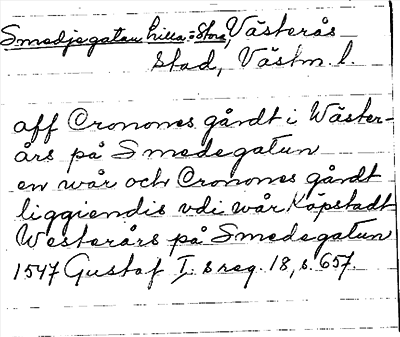 Smedjegatan Lilla=Stora, Västerås
stad, Västm. l.
aff Cronones gårdt i Wäster-
års på Smedegatun
en wår och Cronones gårdt
liggiendis vdi wår Köpstadt
Westerårs på Smedegatun
1547 Gustaf I. s reg. 18, s. 657.